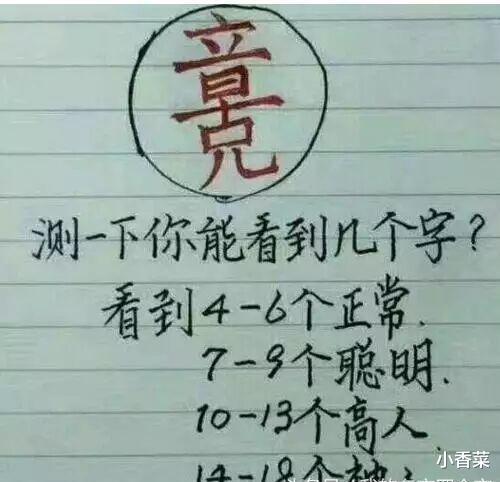 测一下你能看到几个字?
看到4-6个正常.
7-9个聪明.
10-13个高人
14-18个神
小香菜